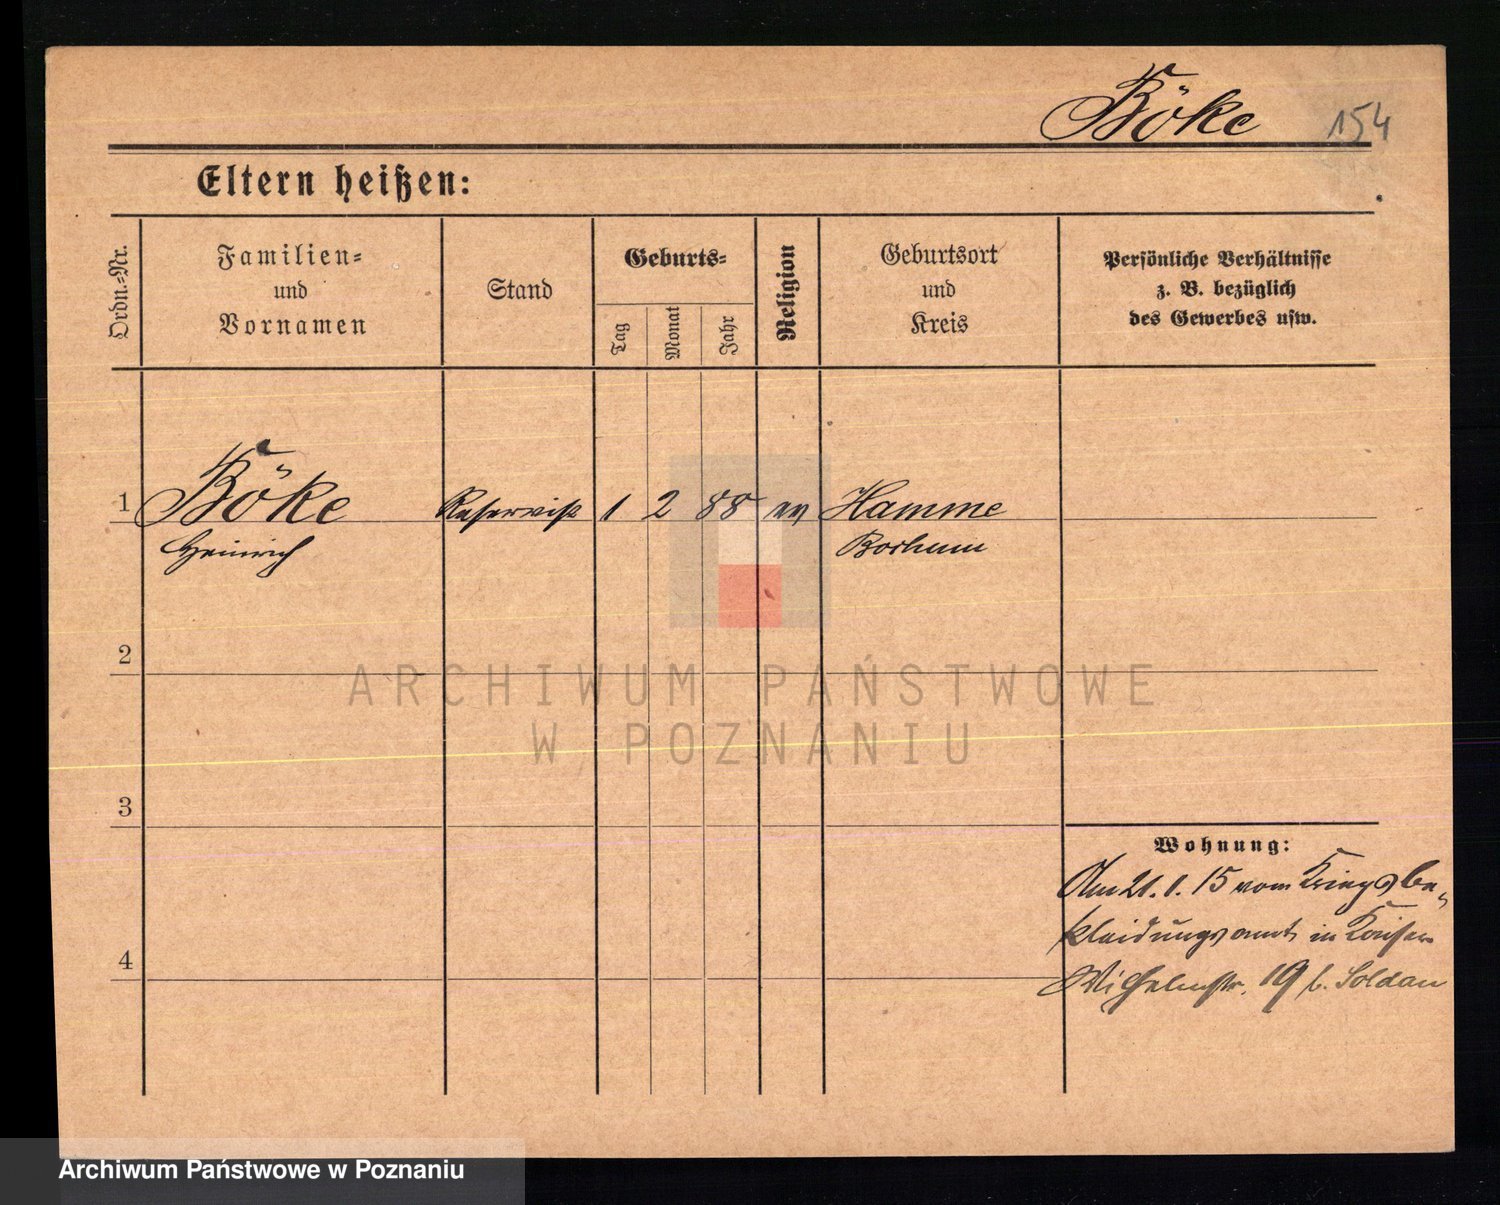 Böke 154
Eltern heißen:
Ordn.-Nr.
Familien-
und
Vornamen
Stand
Geburts-
Tag
Monat
Jahr
Religion
Geburtsort
und
Kreis
Persönliche Verhältnisse
z. B. bezüglich
des Gewerbes usw.
1 Böke Reservist 1 2 88 ev Hamme
Heinrich Bochum
2
ARCHIWUM PAŃSTWOWE
W POZNANIU
3
Wohnung:
Am 21. 1. 15 vom Kriegsbe-
kleidungsamt in Kaiser
Wilhelmstr. 19 b. Soldan
4
Archiwum Państwowe w Poznaniu